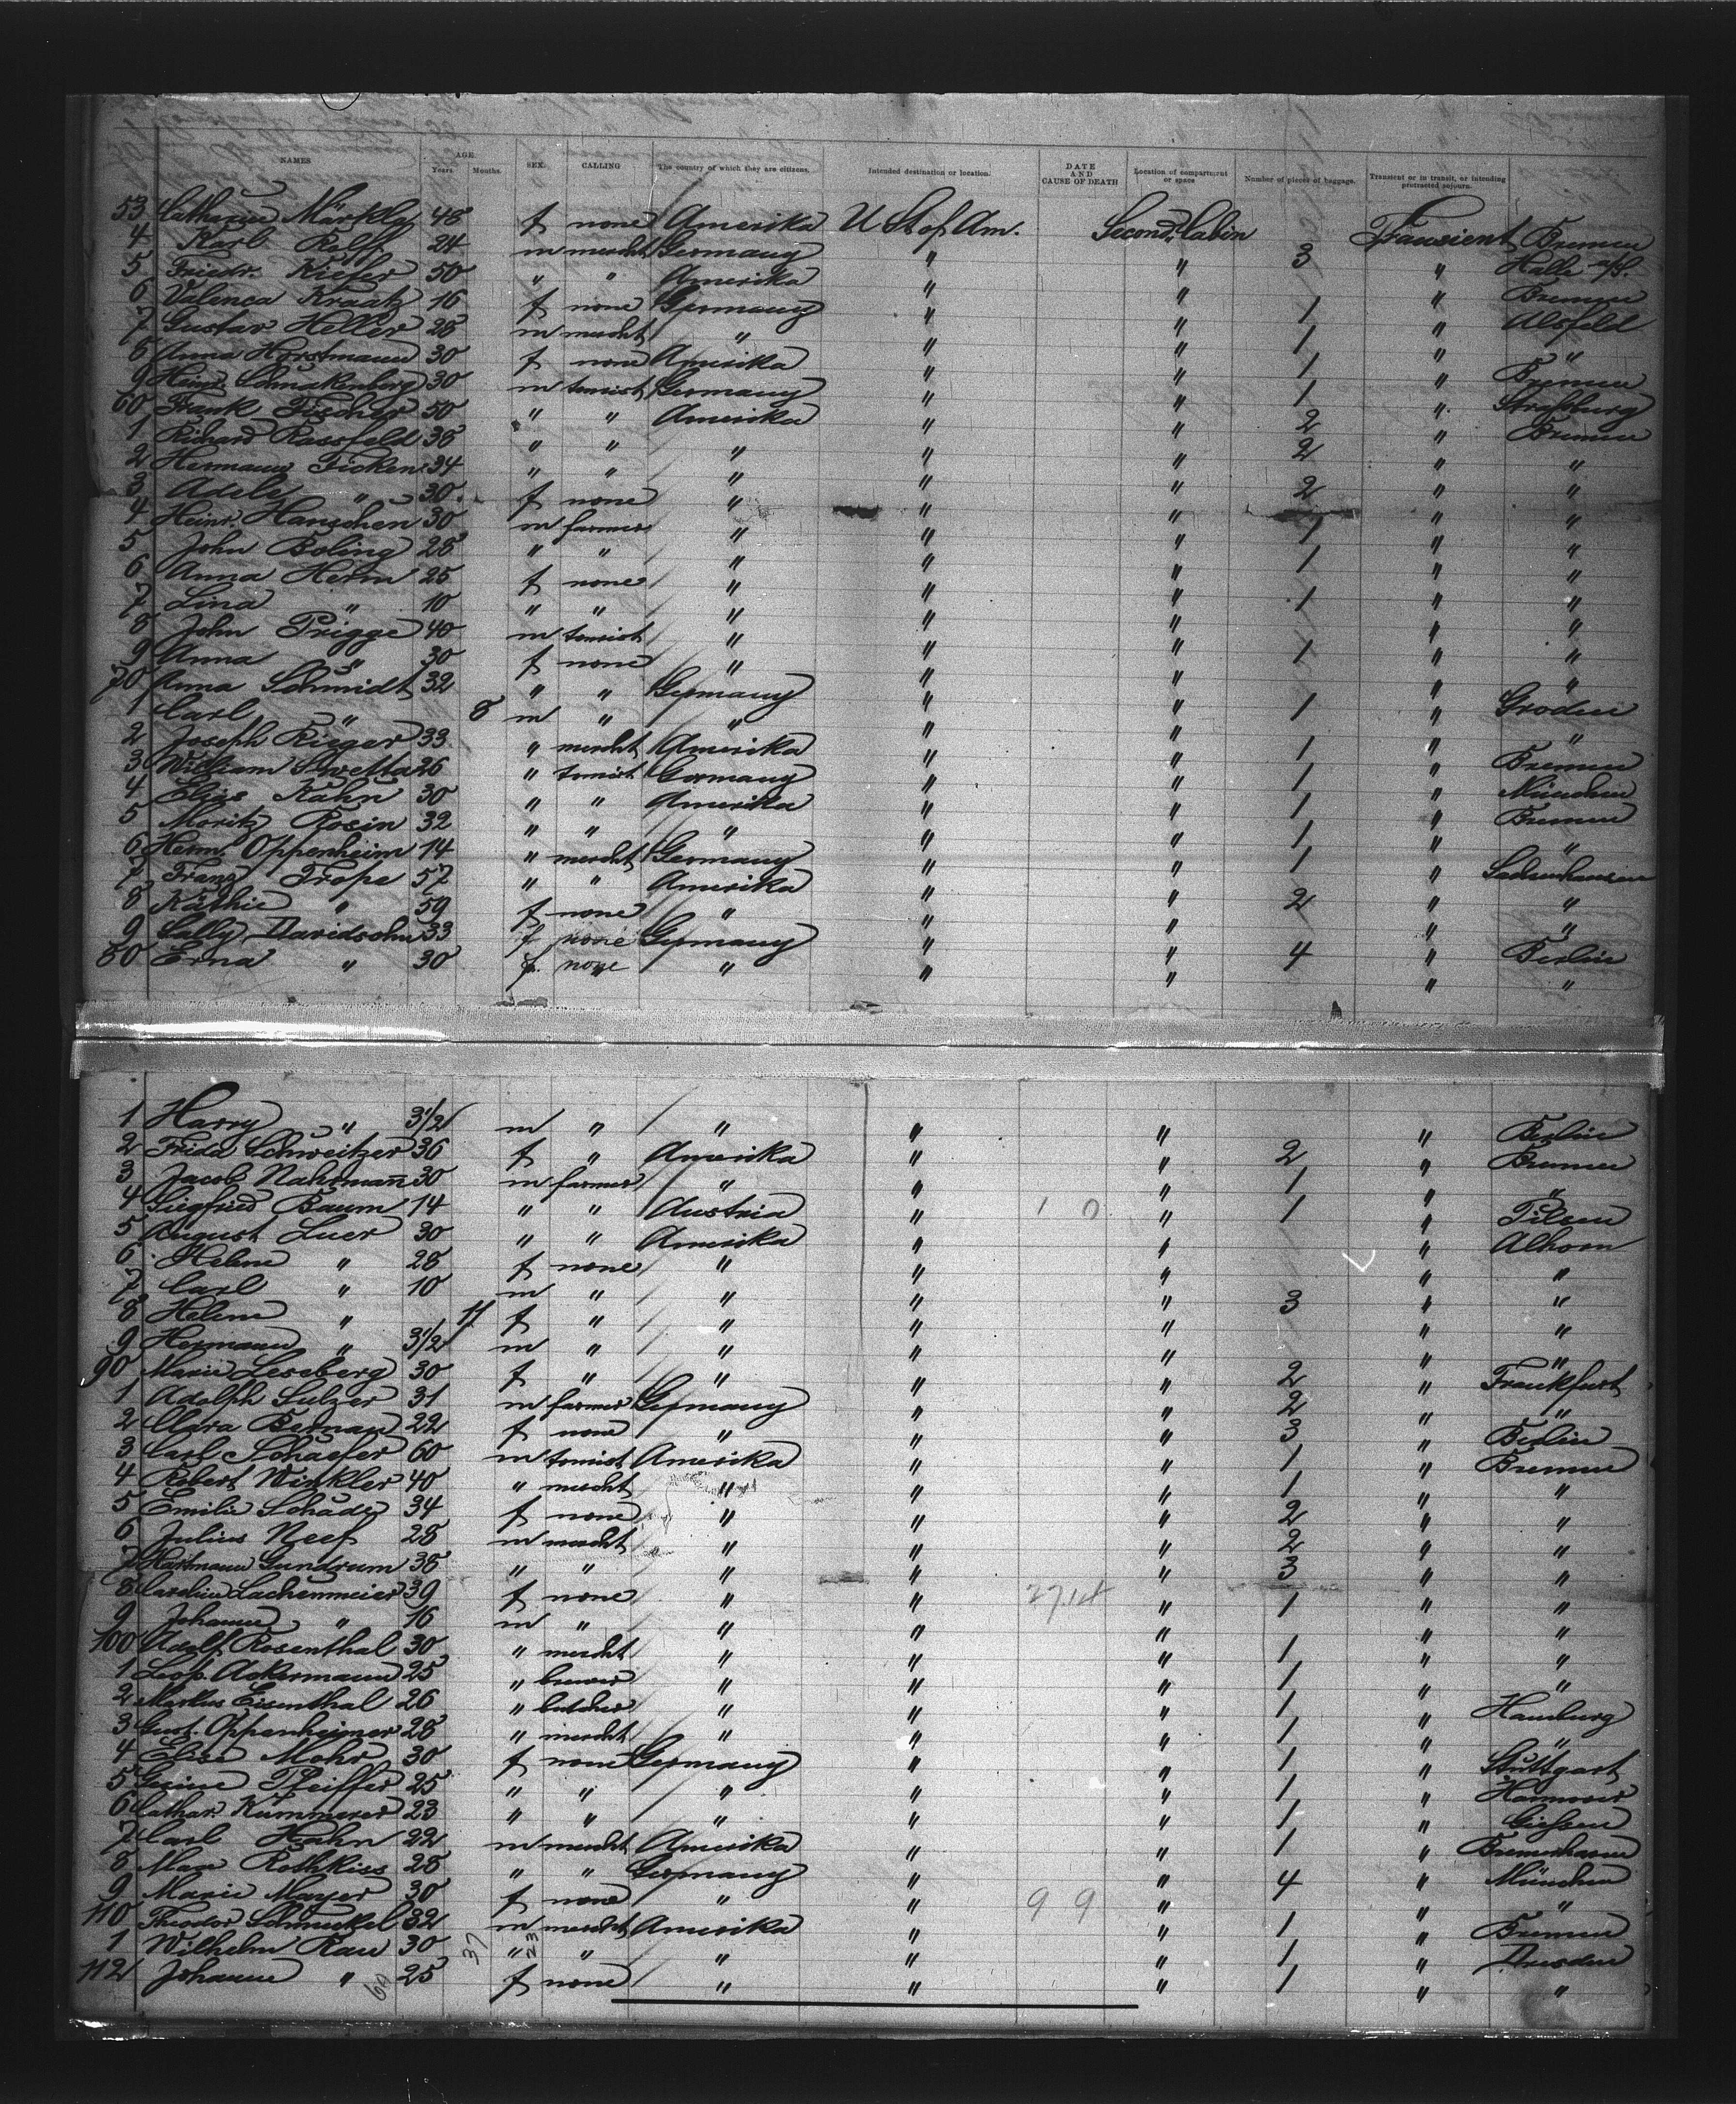 NAMES AGE Years Months. SEX. CALLING The country of which they are citizens. Intended destination or location. DATE AND CAUSE OF DEATH Location of compartment or space Number of pieces of baggage. Transient or in transit, or intending protracted sojourn.
53 48 f none Amerika U St of Am. Second Cabin Transient Bremen
4 Karl Rolff 24 m mercht Germany " " 3 " Halle a/S.
5 Friedr. Kiefer 50 " " Amerika " " " Bremen
6 Valenca Kraatz 16 f none Germany " " 1 " Alsfeld
7 Gustav Heller 28 m mercht " " " 1 " "
8 Anna Horstmann 30 f none Amerika " " 1 " Bremen
9 Heinr. Schnakenberg 30 m tourist Germany " " 1 " Straßburg
60 Frank Fischer 50 " " Amerika " " 2 " Bremen
1 Richard Rassfeld 38 " " " " " 2 " "
2 Hermann Ficken 34 " " " " " 2 " "
3 Adele " 30 f none " " " " "
4 Heinr. Hanschen 30 m farmer " " " 1 " "
5 John Boling 28 " " " " " 1 " "
6 Anna Herm 25 f none " " " 1 " "
7 Lina " 10 " " " " " " "
8 John Prigge 40 m tourist " " " 1 " "
9 Anna " 30 f none " " " " "
70 Anna Schmidt 32 " " Germany " " 1 " Groden
1 Carl " 8 m " " " " " "
2 Joseph Rieger 33 " mercht Amerika " " 1 " Bremen
3 William 26 " tourist Germany " " 1 " München
4 Elias Kahn 30 " " Amerika " " 1 " Bremen
5 Moritz Rosin 32 " " " " " 1 " "
6 Herm. Oppenheim 14 " mercht Germany " " 1 " Sachsenhausen
7 Franz Trope 57 " " Amerika " " 2 " "
8 Käthie " 59 f none " " " " "
9 Sally Davidsohn 33 f none Germany " " 4 " Berlin
80 Erna " 30 f. none " " " " "
1 Harry " 3 1/2 m " " " " " Berlin
2 Frida Schweitzer 36 f " Amerika " " 2 " Bremen
3 Jacob Nahrmann 30 m farmer " " " 1 " "
4 Siegfried Baum 14 " " Austria " 1 0 " 1 " Pilsen
5 August Luer 30 " " Amerika " " " Alhorn
6 Helene " 28 f none " " " " "
7 Carl " 10 m " " " " 3 " "
8 Helene " 11 f " " " " " "
9 Hermann " 3 1/2 m " " " " " "
90 Marie Leseberg 30 f " " " " 2 " Frankfurt
1 Adolph Sulzer 31 m farmer Germany " " 2 " "
2 Clara Berman 22 f none " " " 3 " Berlin
3 Carl Schaefer 60 m tourist Amerika " " 1 " Bremen
4 Robert Winkler 40 " mercht " " " 1 " "
5 Emilie Schade 34 f none " " " 2 " "
6 Julius Neef 28 m mercht " " " 2 " "
7 Hartmann Gundrum 38 " " " " " 3 " "
8 Caroline Lachenmeier 39 f none " " 27.14 " 1 " "
9 Johann " 16 m " " " " " "
100 Adolf Rosenthal 30 " mercht " " " 1 " "
1 Leop. Ackermann 25 " brewer " " " 1 " "
2 Markus Eisenthal 26 " butcher " " " 1 " Hamburg
3 Gust. Oppenheimer 28 " mercht " " " 1 " "
4 Elise Mohr 30 f none Germany " " 1 " Stuttgart
5 Gesine Pfeiffer 25 " " " " " 1 " Hannover
6 Cathar. Kümmerer 23 " " " " " 1 " Gießen
7 Carl Hahn 22 m mercht Amerika " " 1 " Bremerhaven
8 Max Rothkiss 28 " " Germany " " 4 " München
9 Marie Mayer 30 f none " " 9 9 " " "
110 Theodor Schmeckel 32 m mercht Amerika " " 1 " Bremen
1 Wilhelm Rau 30 37 " 23 " " " " 1 " Dresden
112 Johanne " 25 f none " " " 1 " "